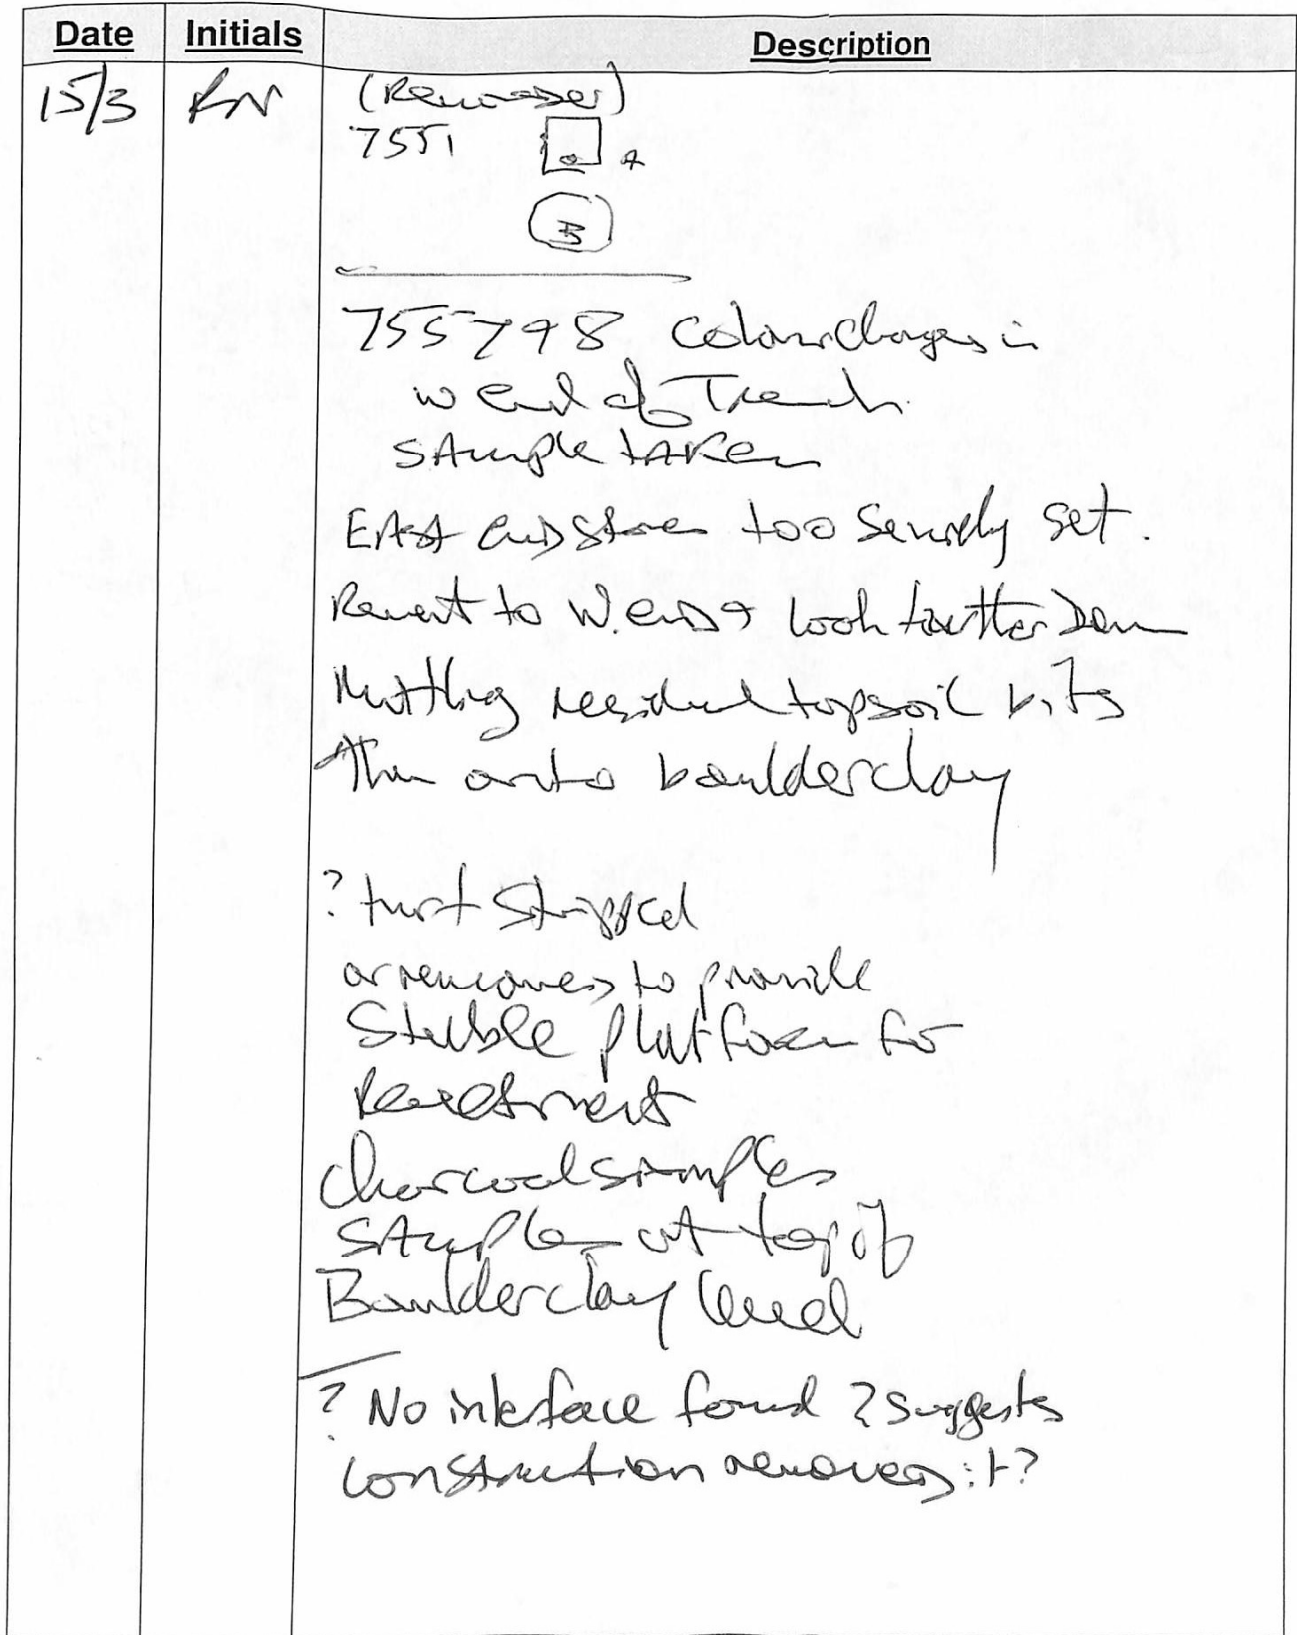 Date Initials Description
15/3 RN (Remember)
7551 A
B
7557+8 Colour changes in
W end of Trench
SAmple tAKen
EASt end stone too securely set.
Revert to W. end + look further Down
Mottling residual topsoil bits
Then onto boulderclay
? turf stripped
or removed to provide
Stable platform for
Revetment
Charcoal samples
SAmples at top of
Boulderclay level
? No interface found ? suggests
construction removed it?